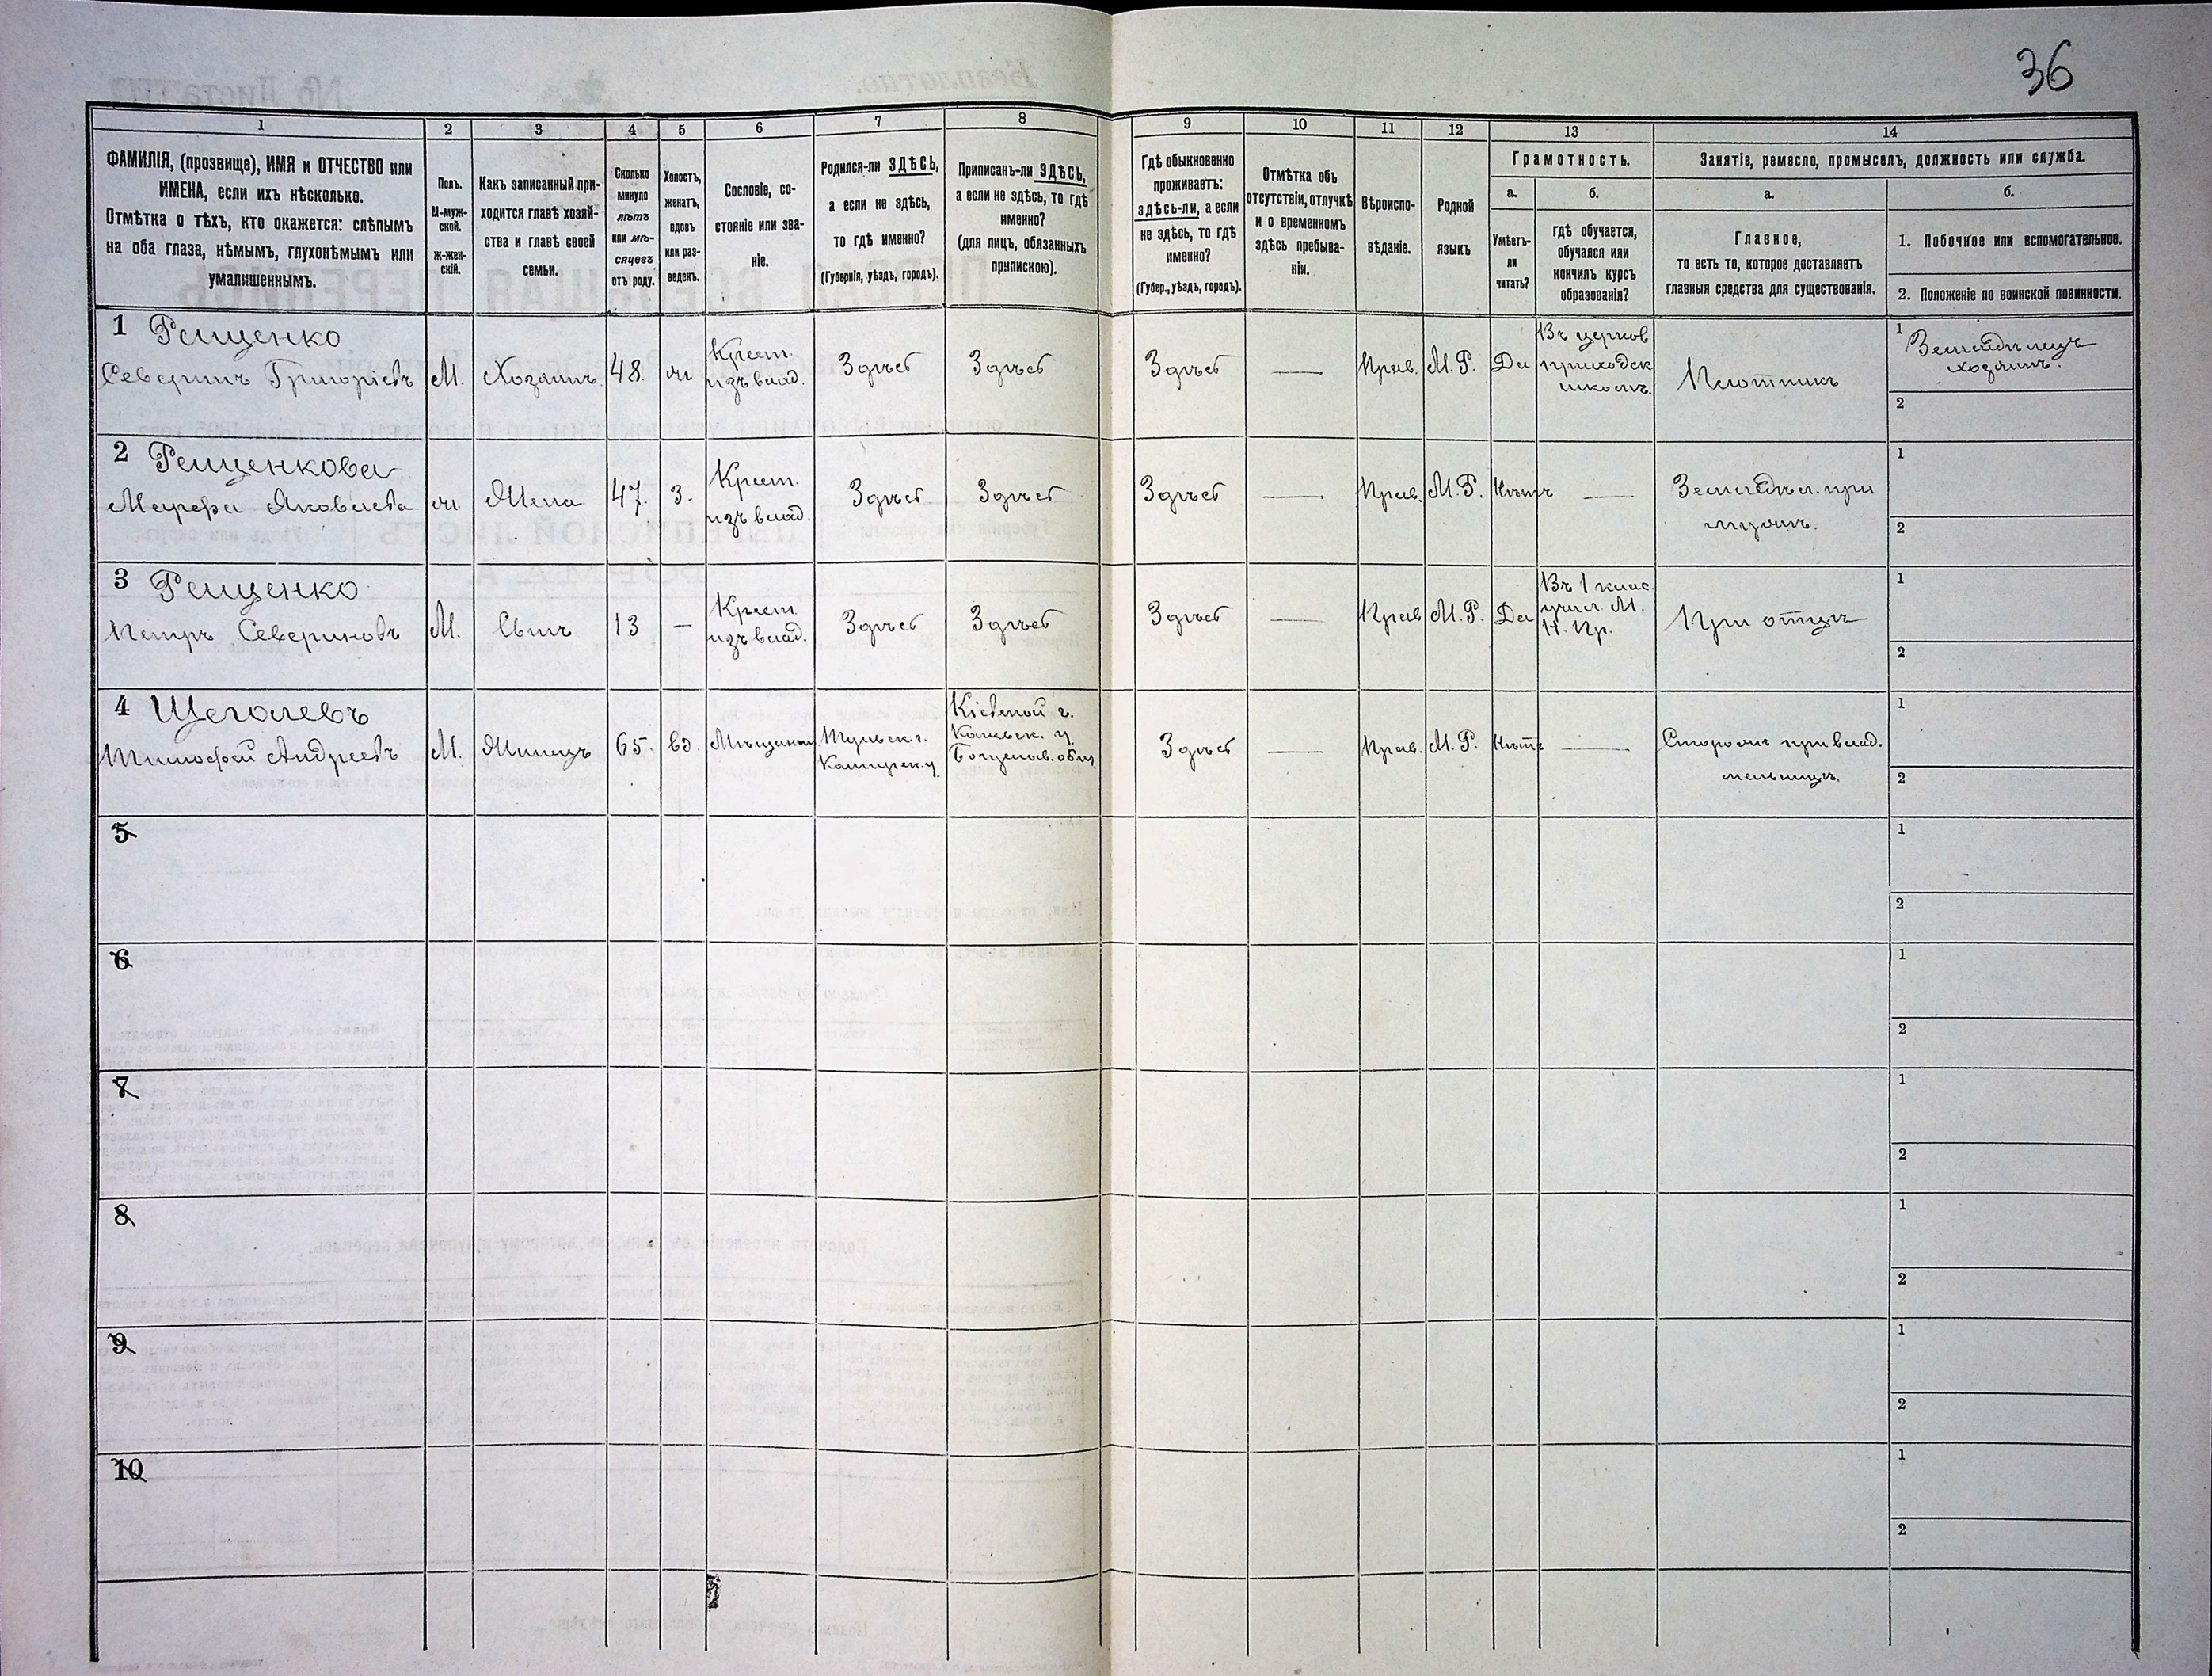 36
1
2
3
4
5
6
7
8
9
10
11
12
13
14
ФАМИЛІЯ, (прозвище), ИМЯ и ОТЧЕСТВО или
ИМЕНА, если ихъ нѣсколько.
Отмѣтка о тѣхъ, кто окажется: слѣпымъ
на оба глаза, нѣмымъ, глухонѣмымъ или
умалишеннымъ.
Полъ.
М-муж-
ской.
ж-жен-
скій.
Какъ записанный при-
ходится главѣ хозяй-
ства и главѣ своей
семьи.
Сколько
минуло
лѣтъ
или мѣ-
сяцевъ
отъ роду.
Холостъ,
женатъ,
вдовъ
или раз-
веденъ.
Сословіе, со-
стояніе или зва-
ніе.
Родился-ли ЗДѢСЬ,
а если не здѣсь,
то гдѣ именно?
(Губернія, уѣздъ, городъ).
Приписанъ-ли ЗДѢСЬ,
а если не здѣсь, то гдѣ
именно?
(для лицъ, обязанныхъ
припискою).
Гдѣ обыкновенно
проживаетъ:
здѣсь-ли, а если
не здѣсь, то гдѣ
именно?
(Губер., уѣздъ, городъ).
Отмѣтка объ
отсутствіи, отлучкѣ
и о временномъ
здѣсь пребыва-
ніи.
Вѣроиспо-
вѣданіе.
Родной
языкъ
Грамотность.
а.
Умѣетъ-
ли
читать?
б.
гдѣ обучается,
обучался или
кончилъ курсъ
образованія?
Занятіе, ремесло, промыселъ, должность или служба.
а.
Главное,
то есть то, которое доставляетъ
главныя средства для существованія.
б.
1. Побочное или вспомогательное.
2. Положеніе по воинской повинности.
1 Рещенко
Северинъ Григоріевъ
М.
Хозяинъ
48.
ж
Крест.
изъ влад.
Здѣсь
Здѣсь
Здѣсь
—
Прав.
М. Р.
Да
Въ церков
приходск
школѣ.
Плотникъ
1 Земледѣлецъ
хозяинъ.
2
2 Рещенкова
Марфа Яковлева
ж
Жена
47.
З.
Крест.
изъ влад.
Здѣсь
Здѣсь
Здѣсь
—
Прав.
М. Р.
Нѣтъ
—
Земледѣл. при
мужѣ.
1
2
3 Рещенко
Петръ Севериновъ
М.
Сынъ
13
—
Крест.
изъ влад.
Здѣсь
Здѣсь
Здѣсь
—
Прав
М. Р.
Да
Въ 1 клас.
учил. М.
Н. Пр.
При отцѣ
1
2
4 Щеголевъ
Тимофей Андреевъ
М.
Жилецъ
65.
вд.
Мѣщанинъ
Тульск. г.
Каширск. у.
Кіевской г.
Каневск. у.
Здѣсь
—
Прав.
М. Р.
Нѣтъ
—
Сторожъ при влад.
мельницѣ.
1
2
5
1
2
6
1
2
7
1
2
8
1
2
9
1
2
10
1
2